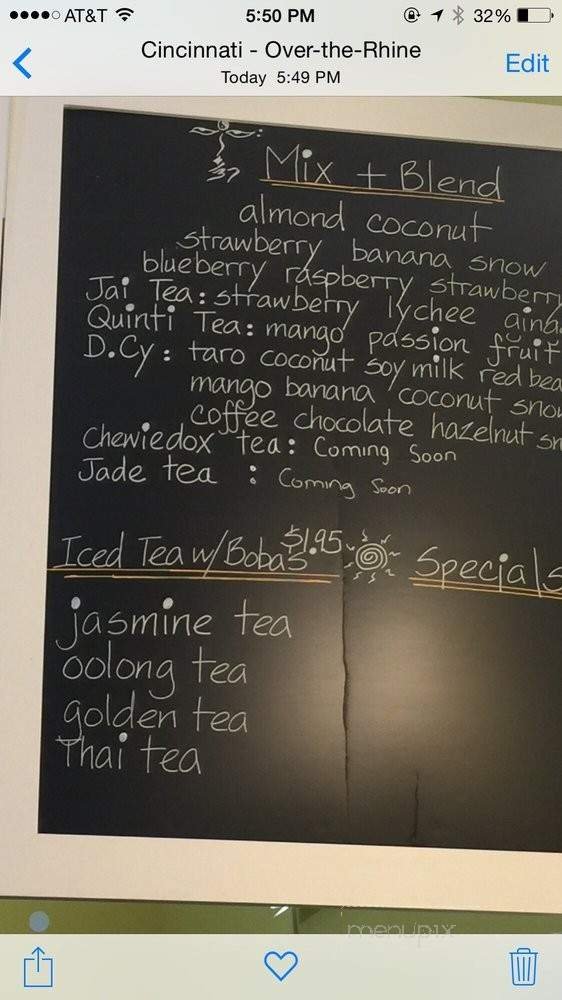 AT&T 5:50 PM 32%
Cincinnati - Over-the-Rhine
Today 5:49 PM
Edit
Mix + Blend
almond coconut
strawberry banana snow
blueberry raspberry strawberry
Jai Tea: strawberry lychee
Quinti Tea: mango passion fruit
D.Cy: taro coconut soy milk red bea
mango banana coconut sno
coffee chocolate hazelnut sn
Chewiedox tea: Coming Soon
Jade tea : Coming Soon
Iced Tea w/ Bobas $1.95
Specials
jasmine tea
oolong tea
golden tea
Thai tea
menupix